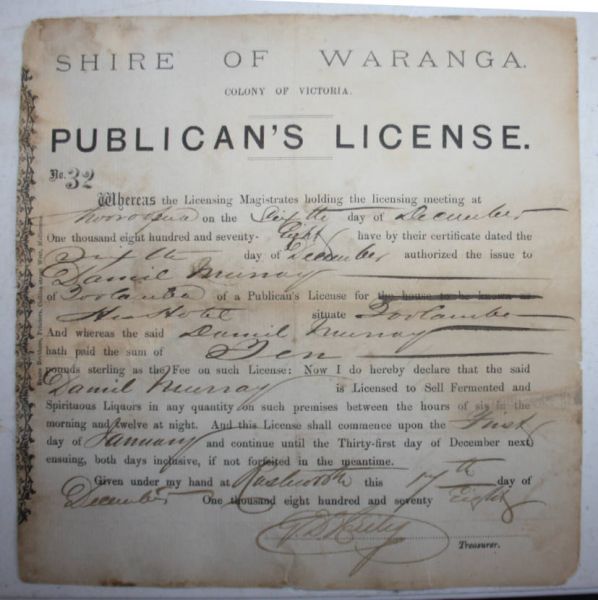 SHIRE OF WARANGA.
COLONY OF VICTORIA.
PUBLICAN'S LICENSE.
No. 32
Whereas the Licensing Magistrates holding the licensing meeting at
on the day of December
One thousand eight hundred and seventy- Eight have by their certificate dated the
day of December authorized the issue to
Daniel Murray
of Toolamba of a Publican's License for the house to be known as
His Hotel situate Toolamba
And whereas the said Daniel Murray
hath paid the sum of Ten
pounds sterling as the Fee on such License: Now I do hereby declare that the said
Daniel Murray is Licensed to Sell Fermented and
Spirituous Liquors in any quantity on such premises between the hours of six in the
morning and twelve at night. And this License shall commence upon the First
day of January and continue until the Thirty-first day of December next
ensuing, both days inclusive, if not forfeited in the meantime.
Given under my hand at Rushworth this 17th day of
December One thousand eight hundred and seventy Eight
Treasurer.